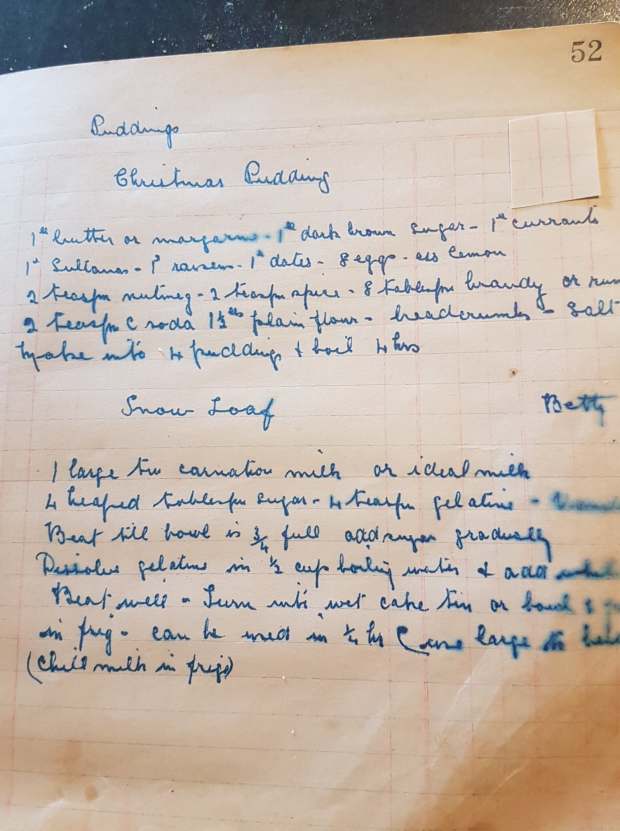 52
Puddings
Christmas Pudding
1lb butter or margarine - 1lb dark brown sugar - 1lb currants
1lb Sultanas - 1lb raisens - 1lb dates - 8 eggs - ess lemon
2 teaspn nutmeg - 2 teaspn spice - 8 tablespn brandy or rum
2 teaspn C soda 1½lbs plain flour - breadcrumbs - Salt
Make into 4 puddings & boil 4 hrs
Snow Loaf Betty
1 large tin carnation milk or ideal milk
4 heaped tablespn sugar - 4 teaspn gelatine -
Beat till bowl is ¾ full add sugar gradually
Dissolve gelatine in ½ cup boiling water & add
Beat well - Turn into wet cake tin or bowl &
in frig - can be used in ¼ hr (use large
(Chill milk in frige)